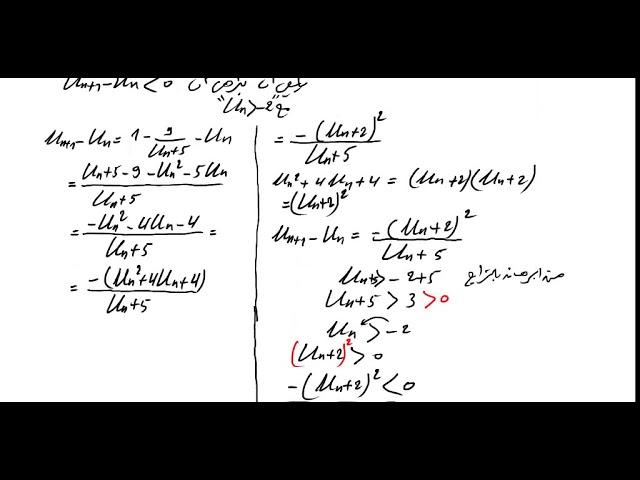 Un+1 - Un < 0
"Un > -2"
Un+1 - Un = 1 - 9/(Un+5) - Un
= (Un+5-9-Un²-5Un)/(Un+5)
= (-Un²-4Un-4)/(Un+5) =
= -(Un²+4Un+4)/(Un+5)
= -(Un+2)²/(Un+5)
Un²+4Un+4 = (Un+2)(Un+2)
= (Un+2)²
Un+1 - Un = -(Un+2)²/(Un+5)
Un+5 > -2+5
Un+5 > 3 > 0
Un > -2
(Un+2)² > 0
-(Un+2)² < 0